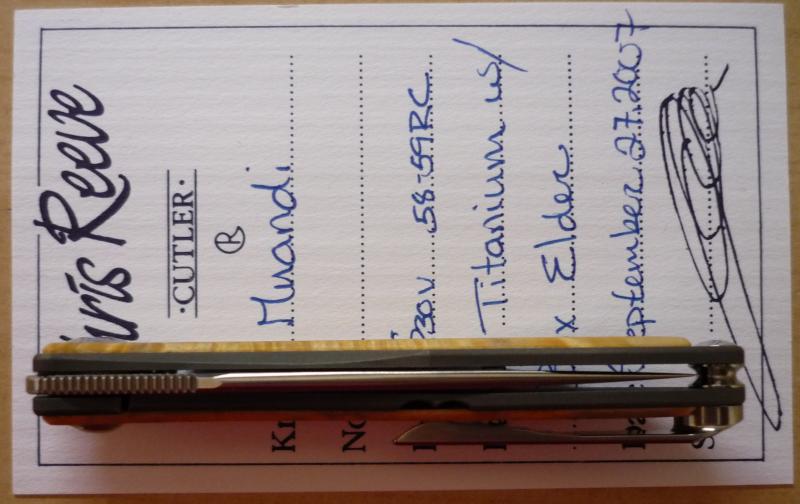 Chris Reeve
·CUTLER·
®
Mnandi
S30V 58-59RC
Titanium w/
x Elder
September 27.2007